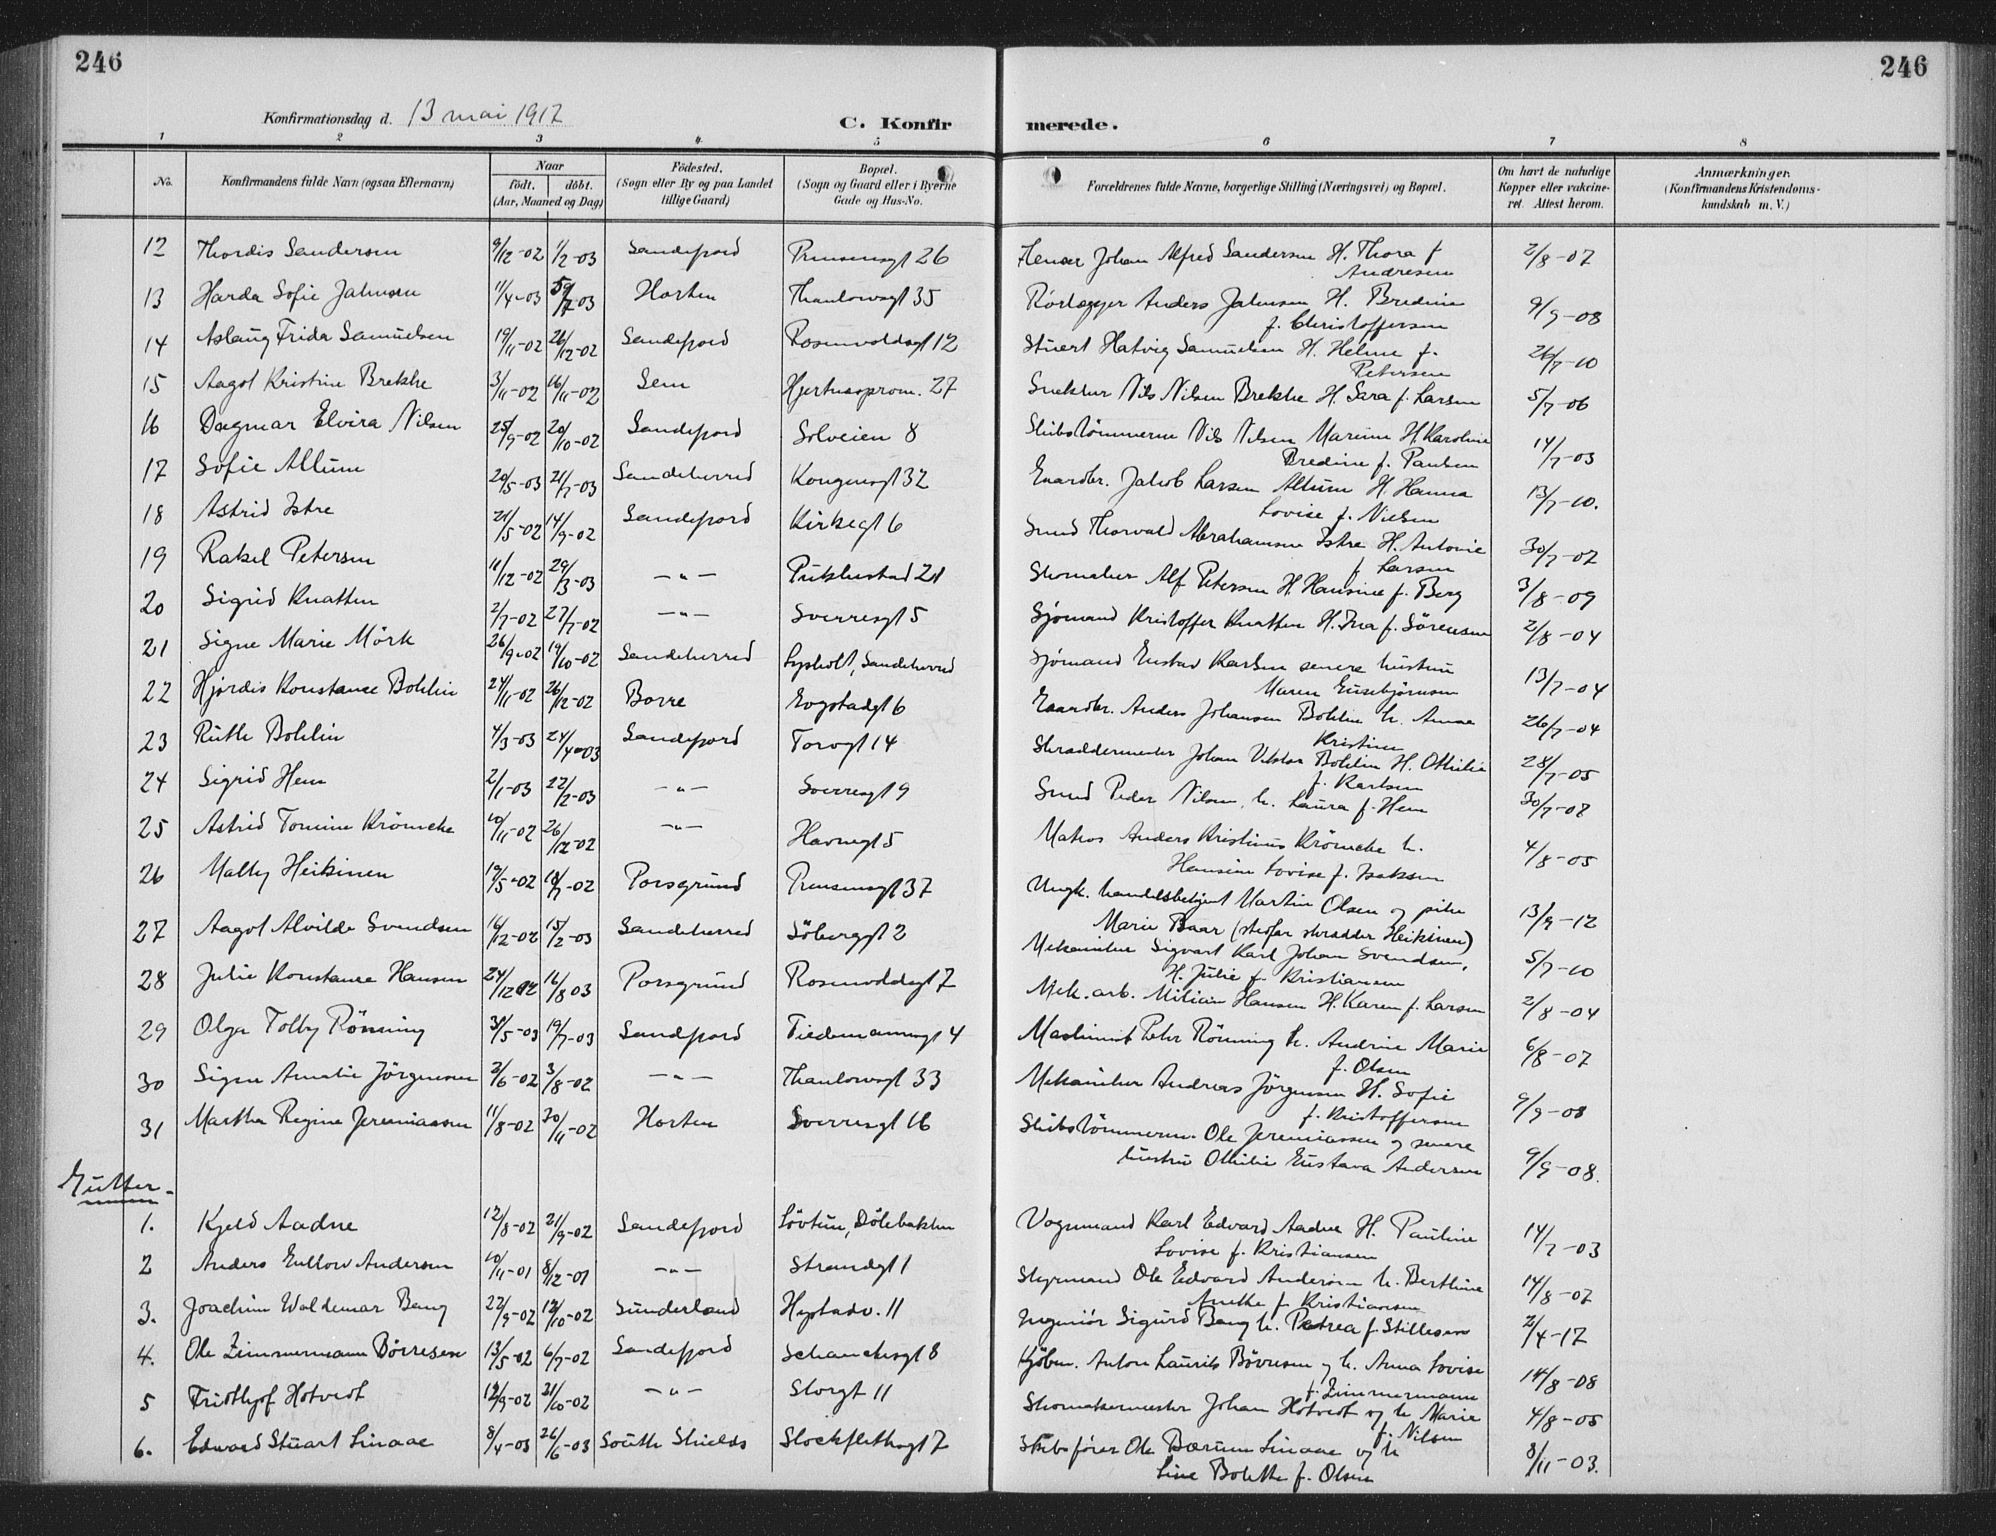 246
246
Konfirmationsdag d. 13 mai 1917
C. Konfir merede.
1 2 3 4 5 6 7 8
No. Konfirmandens fulde Navn (ogsaa Efternavn) Naar födt. döbt. (Aar, Maaned og Dag) Födested. (Sogn eller By og paa Landet tillige Gaard) Bopæl. (Sogn og Gaard eller i Byerne Gade og Hus-No. Forældrenes fulde Navne, borgerlige Stilling (Næringsvei) og Bopæl. Om havt de naturlige Kopper eller vakcineret. Attest herom. Anmærkninger. (Konfirmandens Kristendomskundskab m. V.)
12 Thordis Sandersen 9/12-02 1/2-03 Sandefjord Prinsensgt 26 Johan Alfred Sandersen H. Thora f 2/8-07
Andresen
13 Sofie Jahnsen 11/4-03 Horten Thaulowsgt 35 Rörlægger Anders Jahnsen H. Bredine 9/9-08
f. Christoffersen
14 Aslaug Frida Samuelsen 19/11-02 26/12-02 Sandefjord Rosenvoldsgt 12 Stuert Hatvig Samuelsen H. Helene f. 26/7-10
Petersen
15 Aagot Kristine Brekke 3/11-02 16/11-02 Sem Hjertnesprom. 27 Snekker Nils Nilsen Brekke H. Sara f. Larsen 5/7-06
16 Dagmar Elvira Nilsen 25/9-02 20/10-02 Sandefjord Solveien 8 Skibstömmerm Nils Nilsen H. Karoline 14/7-03
Bredine f. Paulsen
17 Sofie Allum 20/5-03 21/7-03 Sandeherred Kongensgt 32 Gaardbr. Jakob Larsen Allum H. Hanna 13/7-10.
Lovise f. Nielsen
18 Astrid Istre 21/5-02 14/9-02 Sandefjord Kirkegt 6 Smed Thorvald Abrahamsen Istre H. Antonie 30/7-07
f Larsen
19 Rakel Petersen 11/12-02 29/3-03 -"- Pukkestad 21 Skomaker Alf Petersen H. Hansine f. Berg 3/8-09
20 Sigrid Knatten 2/7-02 27/7-02 -"- Sverresgt 5 Sjömand Kristoffer Knatten H. Ina f. Sörensen 2/8-04
21 Signe Marie Mörk 26/9-02 19/10-02 Sandeherred Lysholt, Sandeherred Sjömand Gustav Karlsen senere hustru 13/7-04
Maren
22 Hjördis Konstance Bohlin 24/11-02 26/12-02 Borre 6 Gaardbr. Anders Johansen Bohlin h. Anna 26/7-04
Kristine
23 Ruth Bohlin 4/3-03 24/4-03 Sandefjord Torvgt 14 Skræddermester Johan Viktor Bohlin H. Othilie 28/7-05
f. Karlsen
24 Sigrid Hem 2/1-03 22/2-03 -"- Sverresgt 9 Smed Peder Nilsen, h. Laura f. Hem 30/7-07
25 Astrid Tomine Krömcke 10/11-02 26/12-02 -"- Havnegt 5 Matros Anders Kristinus Krömcke h. 4/8-05
Hansine Lovise f. Isaksen
26 Malby Heikinen 19/5-02 Porsgrund Prinsensgt 37 Ungk. handelsbetjent Martin Olsen og pike 13/9-12
Marie Baar (stefar skrædder Heikinen)
27 Aagot Alvilde Svendsen 16/12-02 15/2-03 Sandeherred Söbergt 2 Mekaniker Sigvart Karl Johan Svendsen, 5/7-10
H. Julie f. Kristiansen
28 Julie Konstance Hansen 24/12 02 16/8 03 Porsgrund Rosenvoldsgt 7 Mek. arb. Hansen H. Karen f. Larsen 2/8-04
29 Olga Tolby Rönning 31/5-03 19/7-03 Sandefjord Tiedemannsgt 4 Maskinist Peter Rönning h. Andrine Marie 6/8-07
f. Olsen
30 Signe Amalie Jörgensen 2/6-02 3/8-02 -"- Thaulowsgt 33 Mekaniker Andreas Jörgensen H. Sofie 9/9-08
f. Kristoffersen
31 Martha Regine Jeremiassen 11/8-02 30/11-02 Horten Sverresgt 16 Skibstömmerm. Ole Jeremiassen og senere 9/9-08.
hustru Othilie Gustava Andersen
Gutter-
1. Kjeld Aadne 12/8-02 21/9-02 Sandefjord Lövtun, Dölebakken Vognmand Karl Edvard Aadne H. Pauline 14/7-03
Lovise f. Kristiansen
2 Anders Enlow Andersen 10/11-01 8/12-01 -"- Strandgt 1 Styrmand Ole Edvard Andersen h. Berthine 14/8-07
Anethe f. Kristiansen
3. Joachim Waldemar Bang 22/9-02 12/10-02 Sunderland 11 Ingeniör Sigurd Bang h. Petrea f. Stillesen 2/4-17
4. Ole Zimmermann Börresen 13/5-02 6/7-02 Sandefjord Schanchesgt 8 Kjöbm. Anton Laurits Börresen og h. Anna Lovise 14/8-08
f. Zimmermann
5 Fridthjof Hotvedt 12/9-02 21/10-02 -"- Storgt 11 Skomakermester Johan Hotvedt og h Marie 4/8-05
f. Nilsen
6. Edward Stuart Linaae 8/4-03 26/6-03 South Shields Stockflethsgt 7 Skibsförer Ole Bærum Linaae og h 8/11-03.
Line Bolette f. Olsen